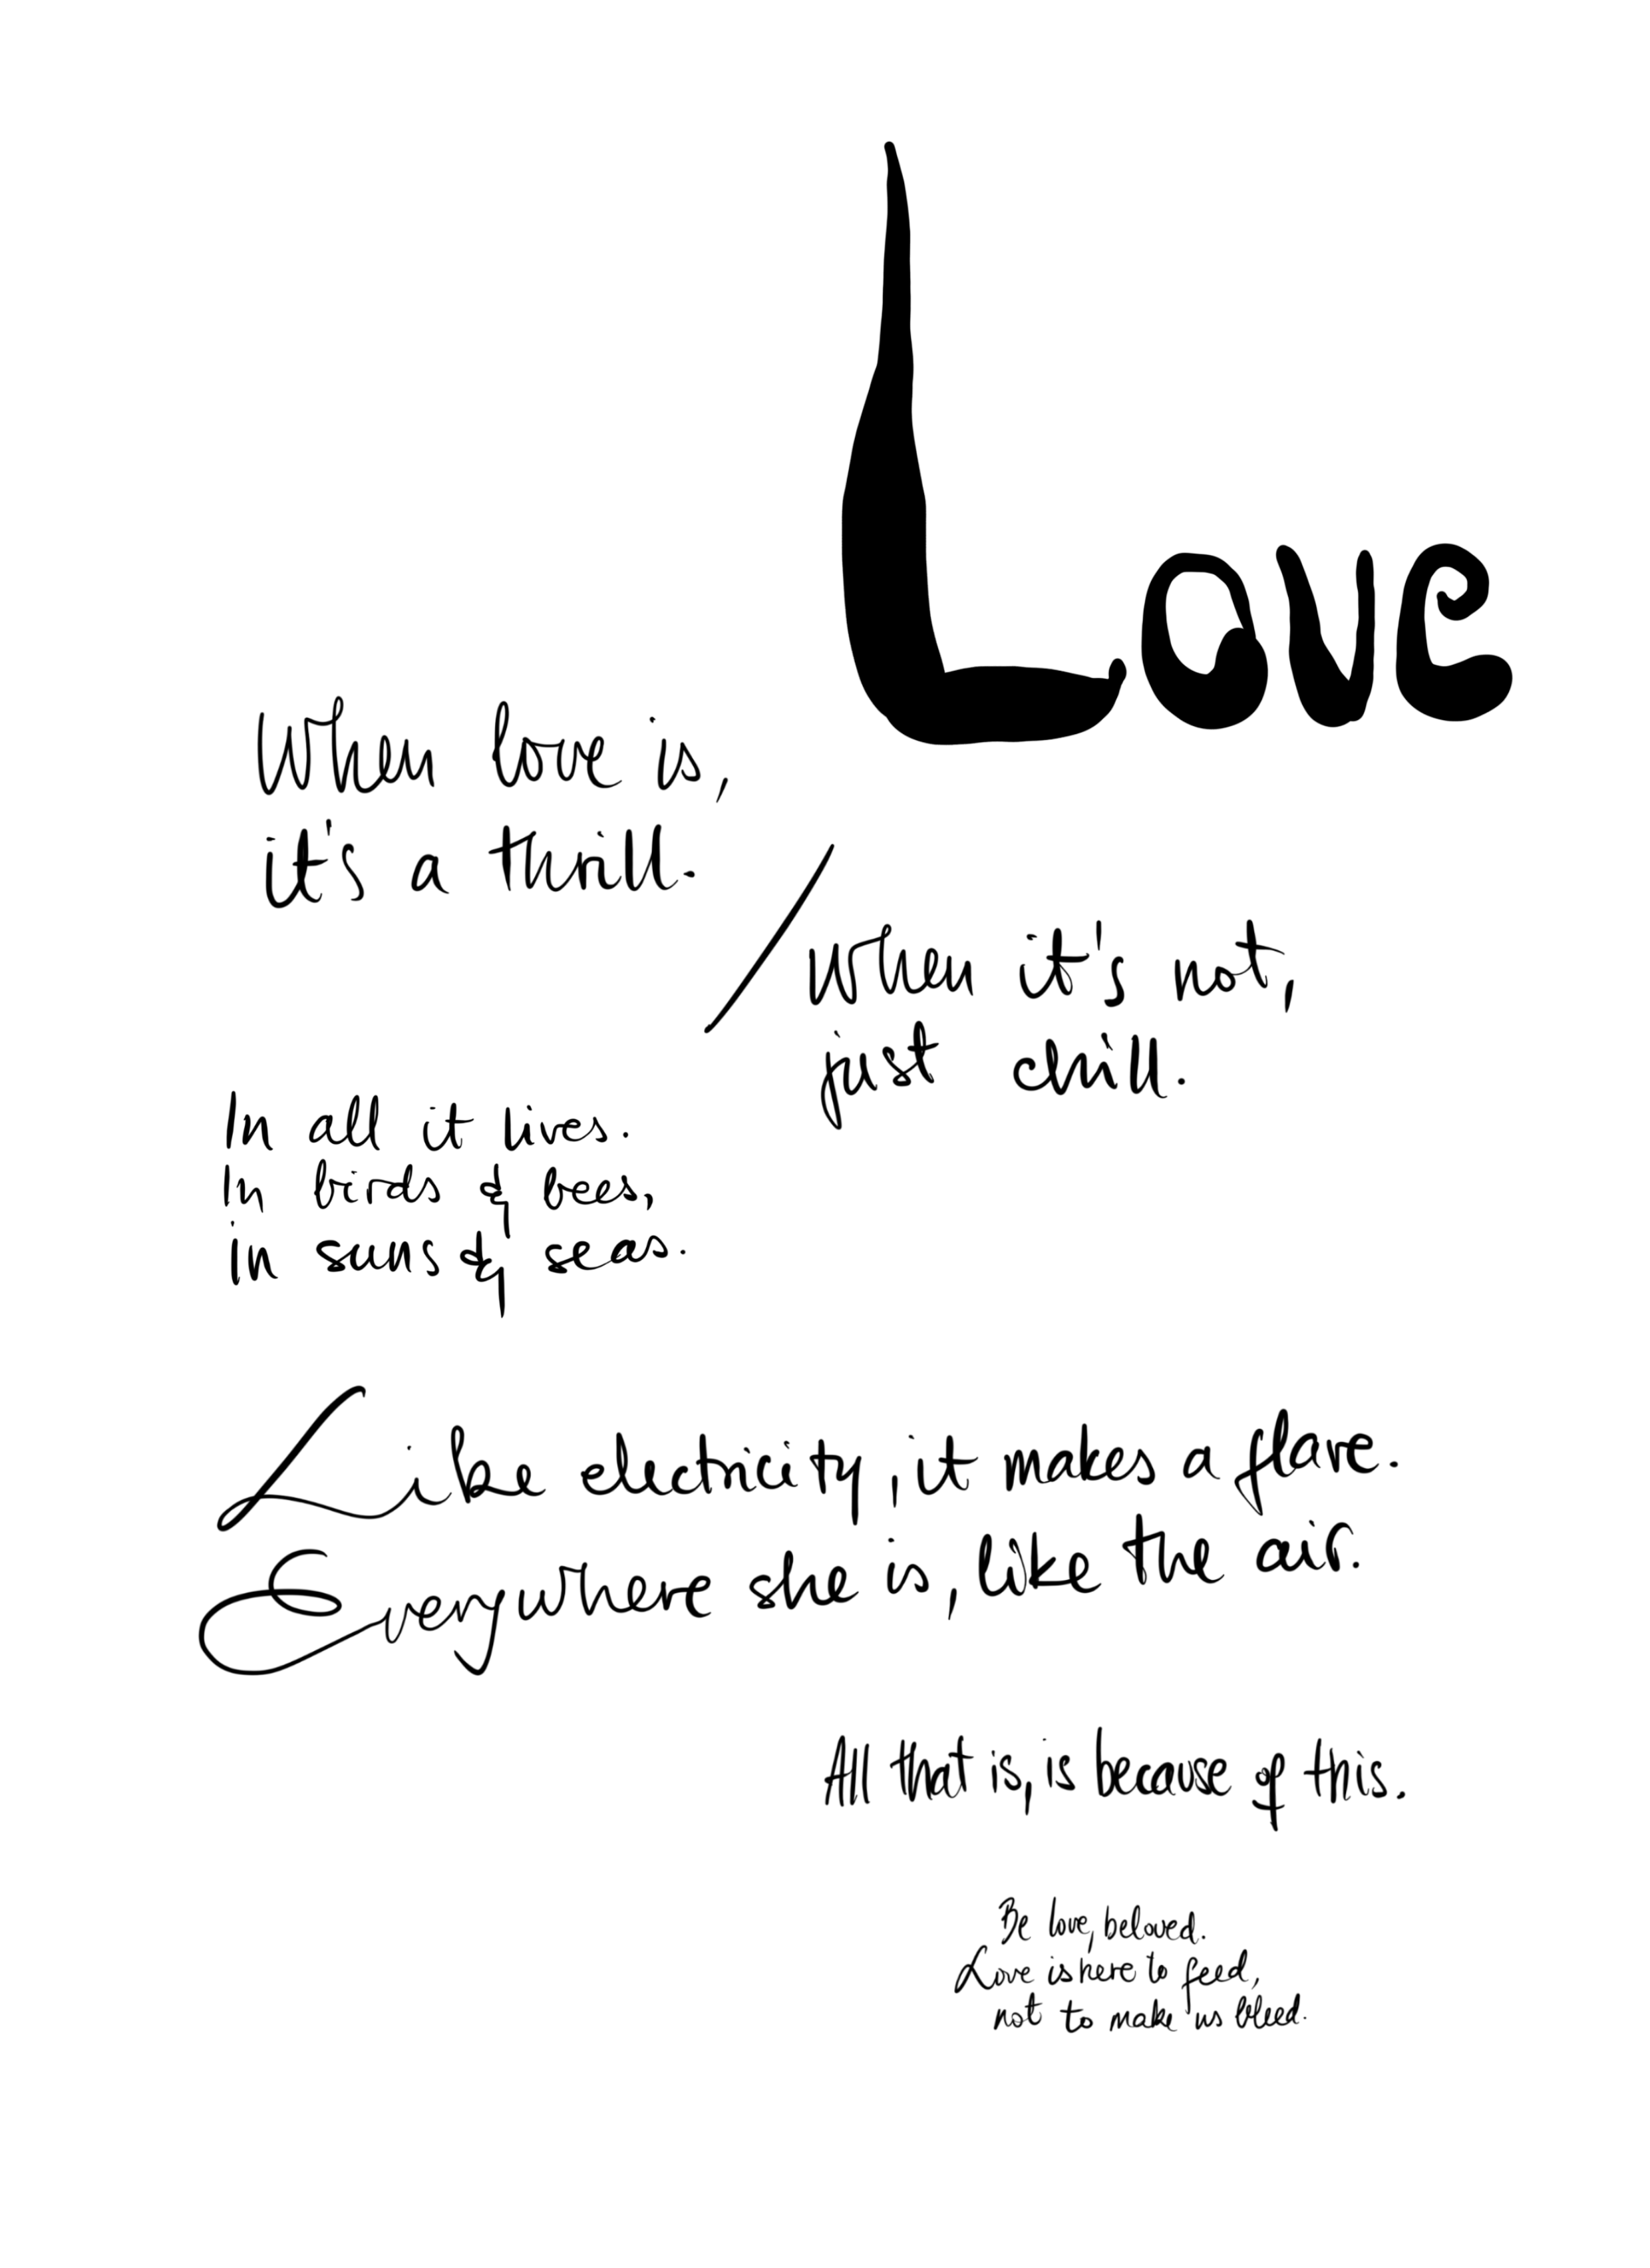 Love
When love is,
it's a thrill.
When it's not,
just chill.
In all it lives.
In birds & bees,
in suns & seas.
Like electricity, it makes a flare.
Everywhere she is, like the air.
All that is, is because of this.
Be love, beloved.
Love is here to feed,
not to make us bleed.